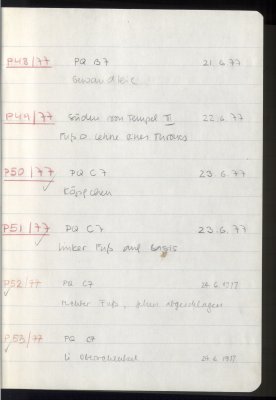 P48/77 PQ B7 21.6.77
P49/77 Süden von Tempel II 22.6.77
Fuß o. Lehne eines Thrones
P50/77 PQ C7 23.6.77
Köpfchen
P51/77 PQ C7 23.6.77
linker Fuß auf Basis
P52/77 PQ C7 24.6.1977
rechter Fuß, abgeschlagen
P53/77 PQ C7
li Oberschenkel 24.6.1977